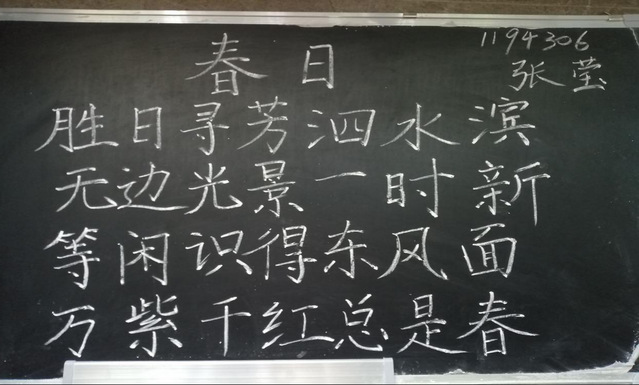 1194306
张莹
春日
胜日寻芳泗水滨
无边光景一时新
等闲识得东风面
万紫千红总是春